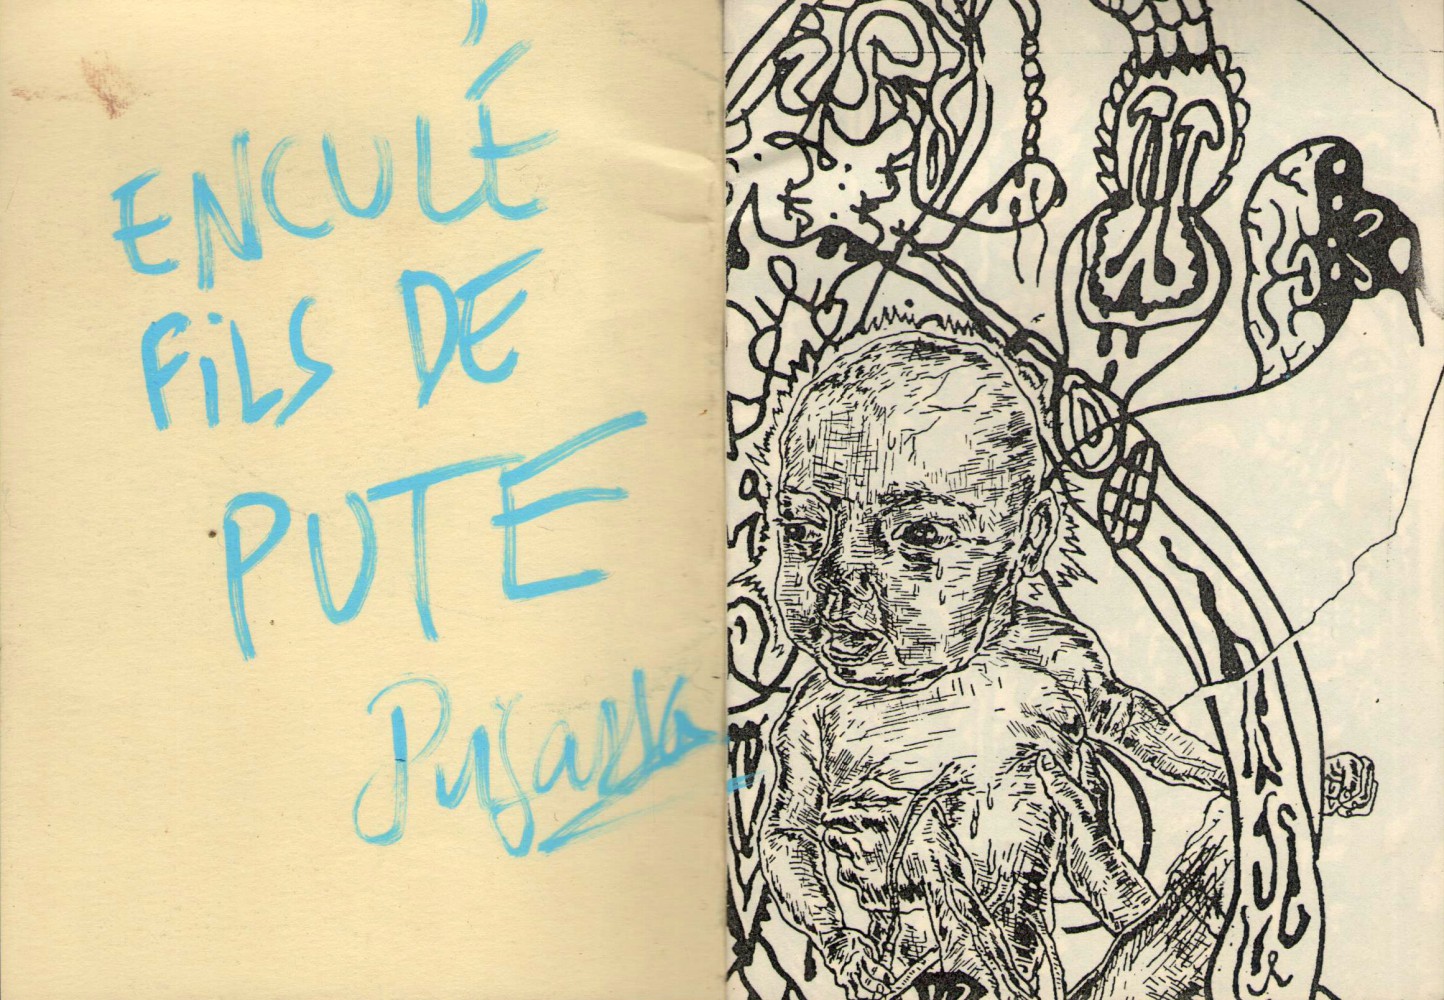 ENCULÉ
FiLS DE
PUTE